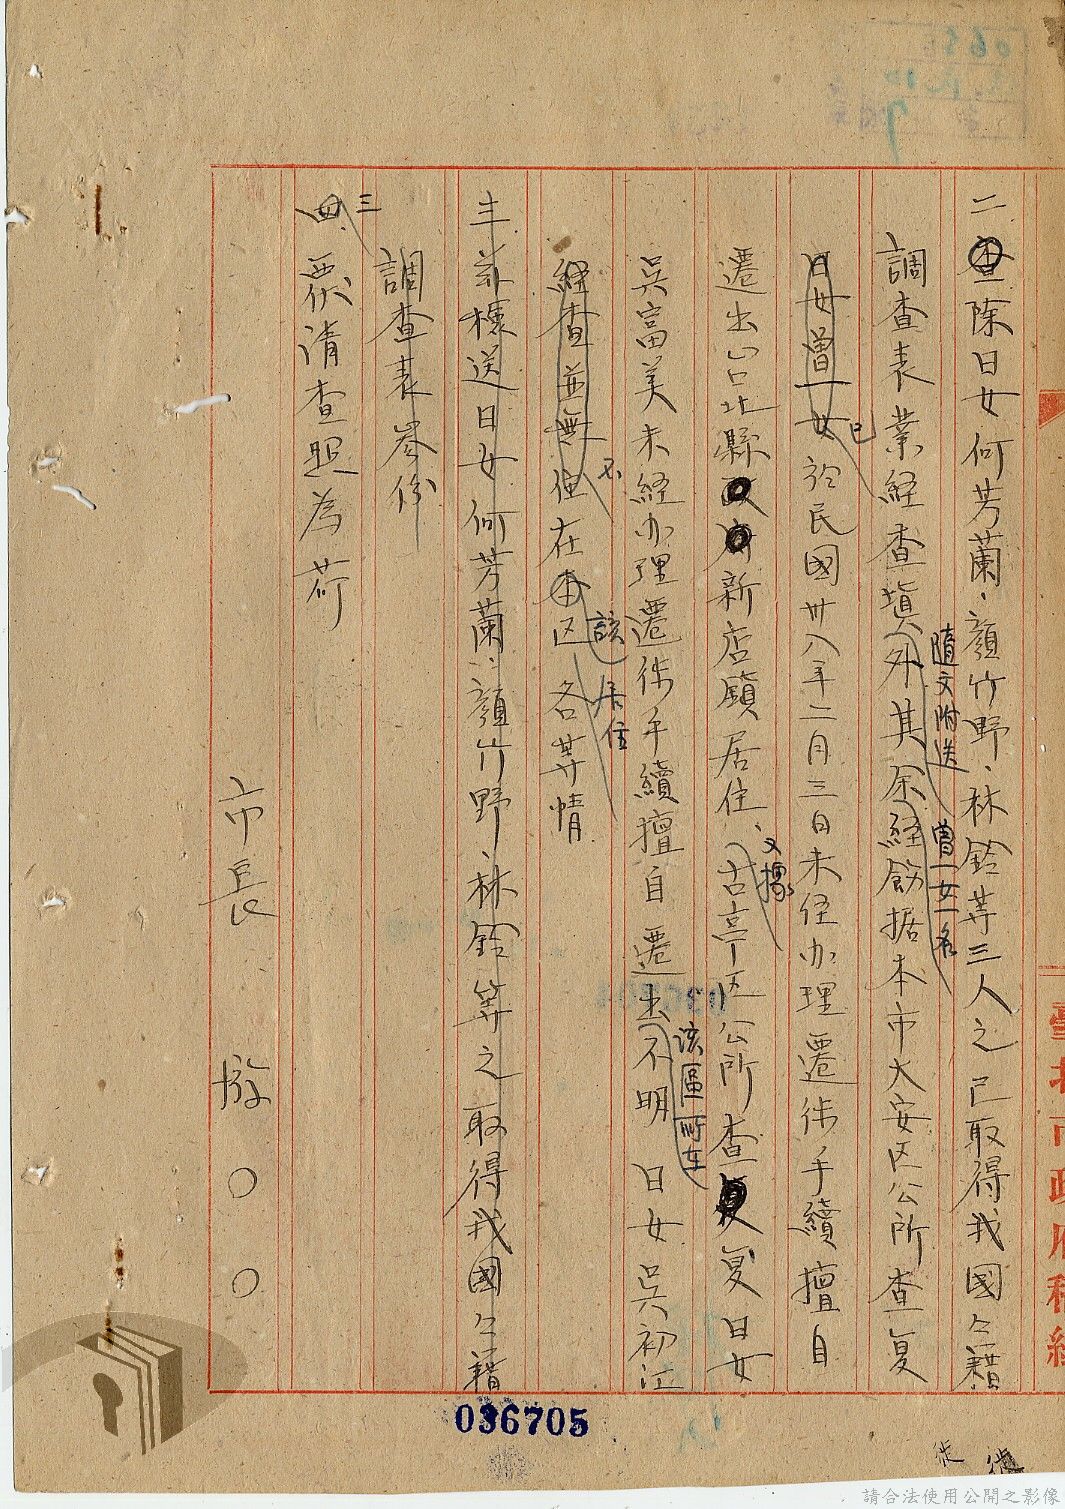 二、查除日女何芳蘭、顏竹野、林鈴等三人之已取得我國公籍
調查表業経查填隨文附送外其余曾一女一名経飭据本市大安区公所查复
日女曾一女已於民國卅八年二月三日未经办理遷徙手續擅自
遷出台北縣新店鎮居住、又據古亭区公所查复日女
吳富美未経办理遷徙手續擅自遷出不明該區所在日女吳初江
経查並無不住在本区該居住各等情
三、茲檢送日女何芳蘭、顏竹野、林鈴等之取得我國公籍
調查表叁份
四三、覀請查照為荷
市長 ○○
臺北市政府稿
036705
徙
請合法使用公開之影像